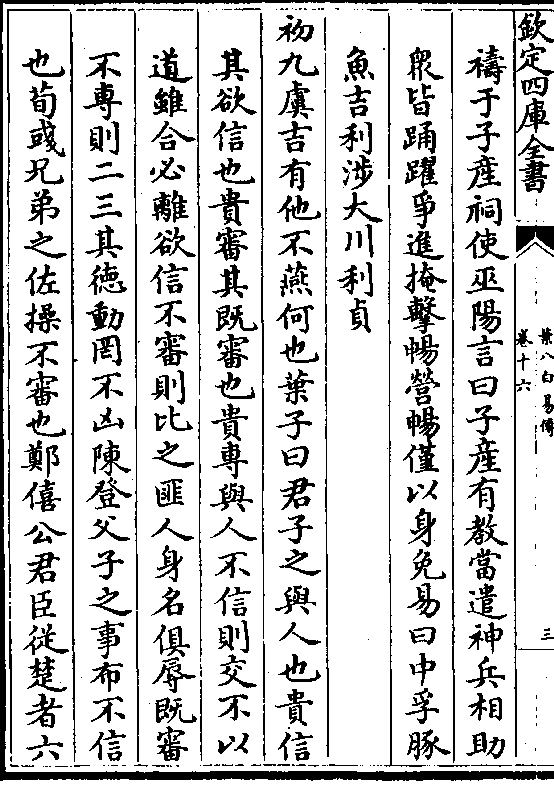 欽定四庫全書
葉八白易傳
卷十六
三
禱于子產祠使巫陽言曰子產有教當遣神兵相助
衆皆踊躍爭進掩擊暢營暢僅以身免易曰中孚豚
魚吉利涉大川利貞
初九虞吉有他不燕何也葉子曰君子之與人也貴信
其欲信也貴審其既審也貴專與人不信則交不以
道雖合必離欲信不審則比之匪人身名俱辱既審
不專則二三其德動罔不凶陳登父子之事布不信
也荀彧兄弟之佐操不審也鄭僖公君臣從楚者六